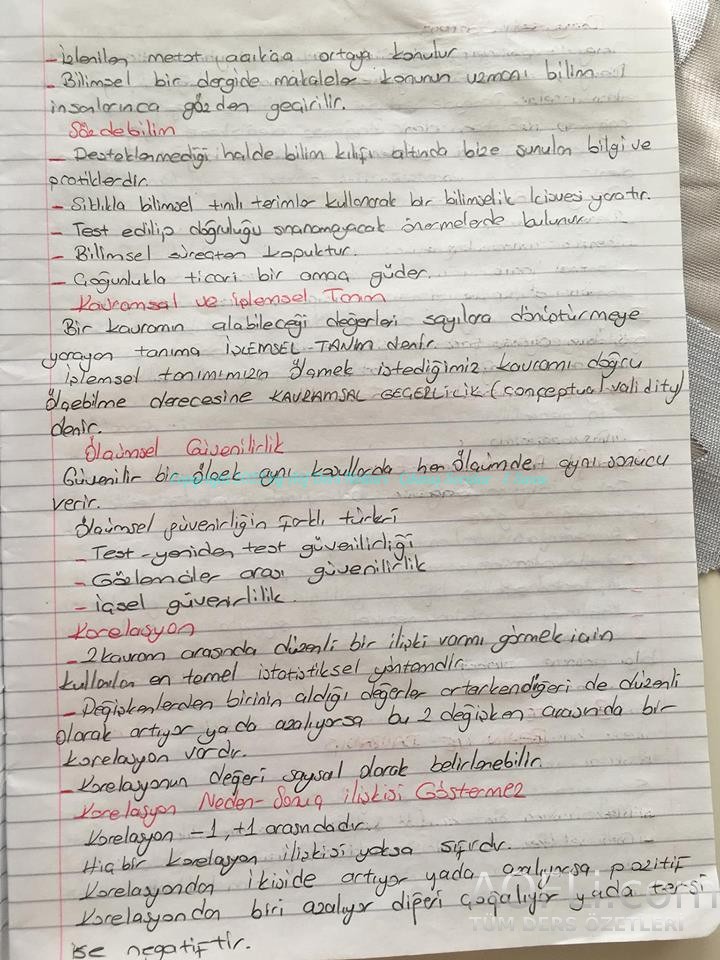 - İzlenilen metot açıkça ortaya konulur
- Bilimsel bir dergide makaleler konunun uzmanı bilim
insanlarınca gözden geçirilir.
Sözdebilim
- Desteklenmediği halde bilim kılıfı altında bize sunulan bilgi ve
pratiklerdir.
- Sıklıkla bilimsel tınılı terimler kullanarak bir bilimsellik kisvesi yaratır.
- Test edilip doğruluğu sınanamayacak önermelerde bulunur.
- Bilimsel süreçten kopuktur.
- Çoğunlukla ticari bir amaç güder.
Kavramsal ve İşlemsel Tanım
Bir kavramın alabileceği değerleri sayılara dönüştürmeye
yarayan tanıma İŞLEMSEL TANIM denir.
İşlemsel tanımımızın ölçmek istediğimiz kavramı doğru
ölçebilme derecesine KAVRAMSAL GEÇERLİCİK (conceptual validity)
denir.
Ölçümsel Güvenilirlik
Güvenilir bir ölçek aynı koşullarda her ölçümde aynı sonucu
verir.
Ölçümsel güvenirliğin farklı türleri
- Test-yeniden test güvenilirliği
- Gözlemciler arası güvenilirlik
- içsel güvenirlilik.
Korelasyon
- 2 kavram arasında düzenli bir ilişki varmı görmek için
kullanılan en temel istatistiksel yöntemdir.
- Değişkenlerden birinin aldığı değerler artarken diğeri de düzenli
olarak artıyor yada azalıyorsa bu 2 değişken arasında bir
korelasyon vardır.
- Korelasyonun değeri sayısal olarak belirlenebilir.
Korelasyon Neden-Sonuç ilişkisi Göstermez
Korelasyon -1, +1 arasındadır.
Hiç bir korelasyon ilişkisi yoksa sıfırdır.
Korelasyonda ikiside artıyor yada azalıyorsa pozitif
Korelasyonda biri azalıyor diğeri çoğalıyor yada tersi
ise negatiftir.
AÖFLİ.com
TÜM DERS ÖZETLERİ